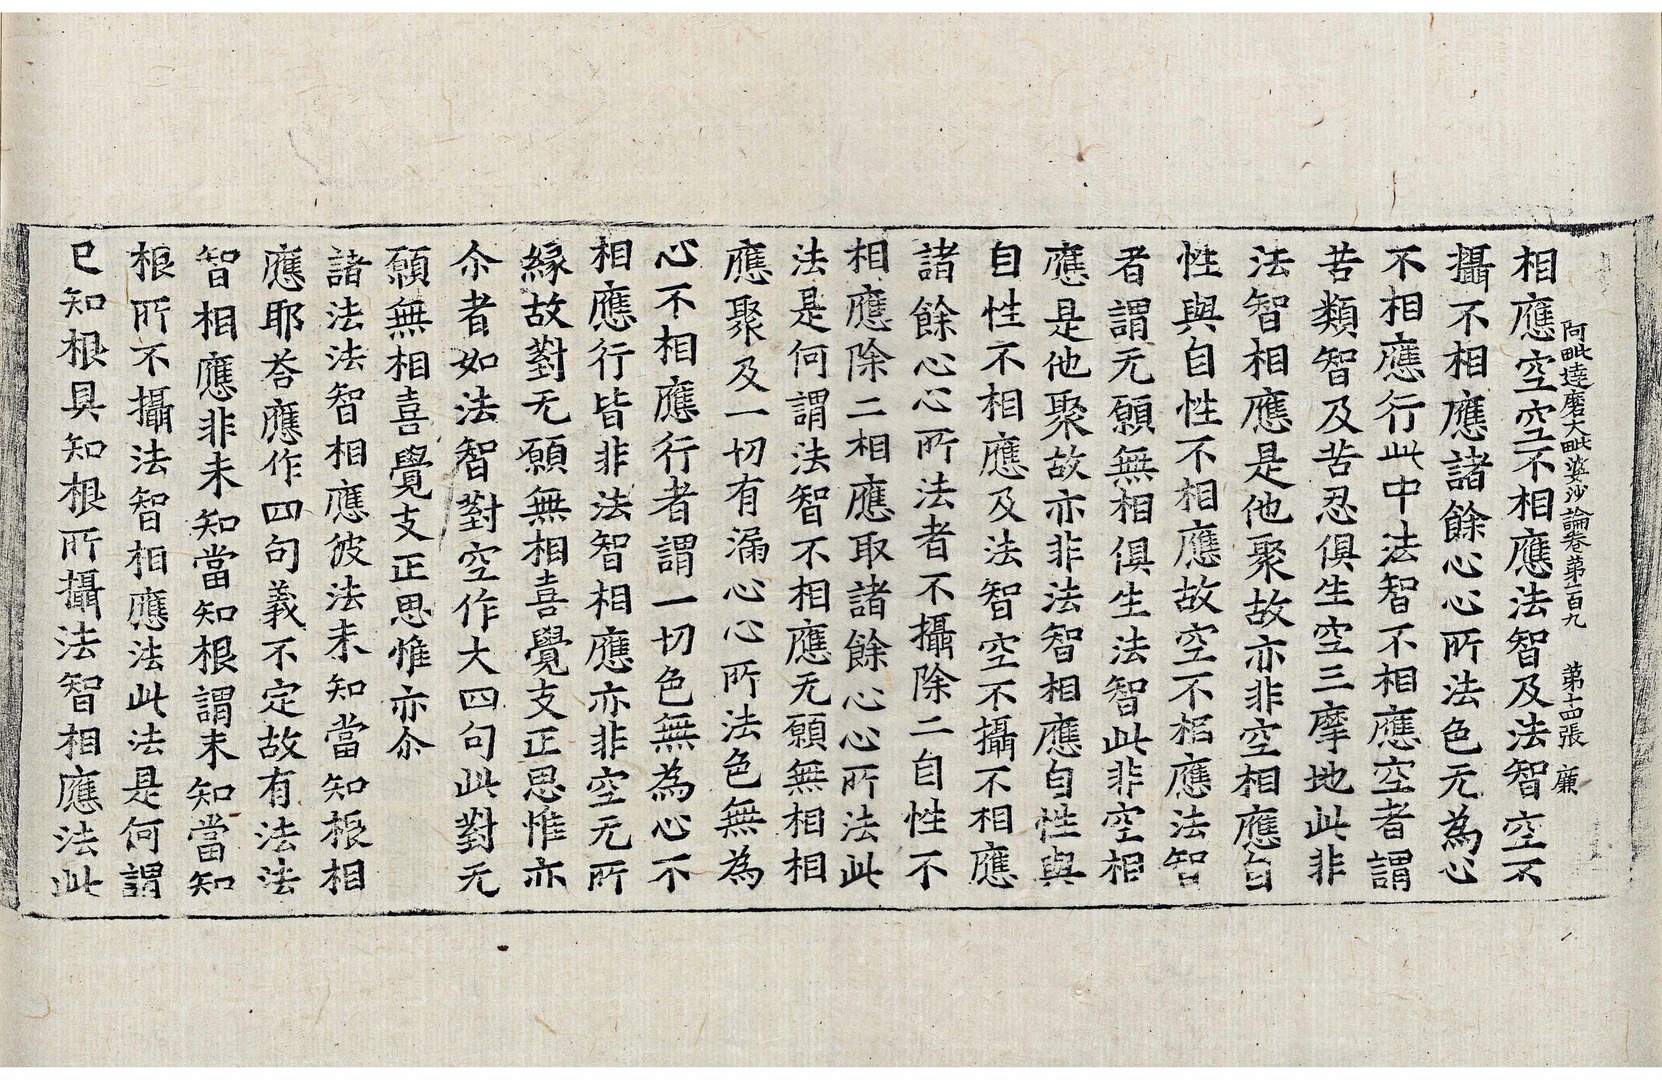 阿毗達磨大毗婆沙論卷第一百九　第十四張　廉
相應空空不相應法智及法智空不
攝不相應諸餘心心所法色无為心
不相應行此中法智不相應空者謂
苦類智及苦忍俱生空三摩地此非
法智相應是他聚故亦非空相應自
性與自性不相應故空不相應法智
者謂无願無相俱生法智此非空相
應是他聚故亦非法智相應自性與
自性不相應及法智空不攝不相應
諸餘心心所法者不攝除二自性不
相應除二相應取諸餘心心所法此
法是何謂法智不相應无願無相相
應聚及一切有漏心心所法色無為
心不相應行者謂一切色無為心不
相應行皆非法智相應亦非空无所
緣故對无願無相喜覺支正思惟亦
尒者如法智對空作大四句此對无
願無相喜覺支正思惟亦尒
諸法法智相應彼法未知當知根相
應耶荅應作四句義不定故有法法
智相應非未知當知根謂未知當知
根所不攝法智相應法此法是何謂
已知根具知根所攝法智相應法此